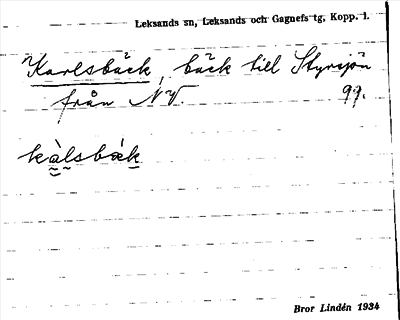 Leksands sn, Leksands och Gagnefs tg, Kopp. l.
Karlsbäck, bäck till Styrsjön
från NV. 99.
kàlsbäk
Bror Lindén 1934